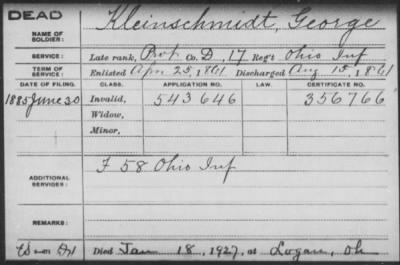 DEAD
NAME OF SOLDIER: Kleinschmidt, George
SERVICE: Late rank, Pvt Co. D, 17 Reg't Ohio Inf
TERM OF SERVICE: Enlisted Apr 25, 1861 Discharged Aug 15, 1861
DATE OF FILING. CLASS. APPLICATION NO. LAW. CERTIFICATE NO.
1885 June 30 Invalid, 543646 356766
Widow,
Minor,
ADDITIONAL SERVICES: F 58 Ohio Inf
REMARKS:
Died Jan 18, 1927, at Logan, Oh